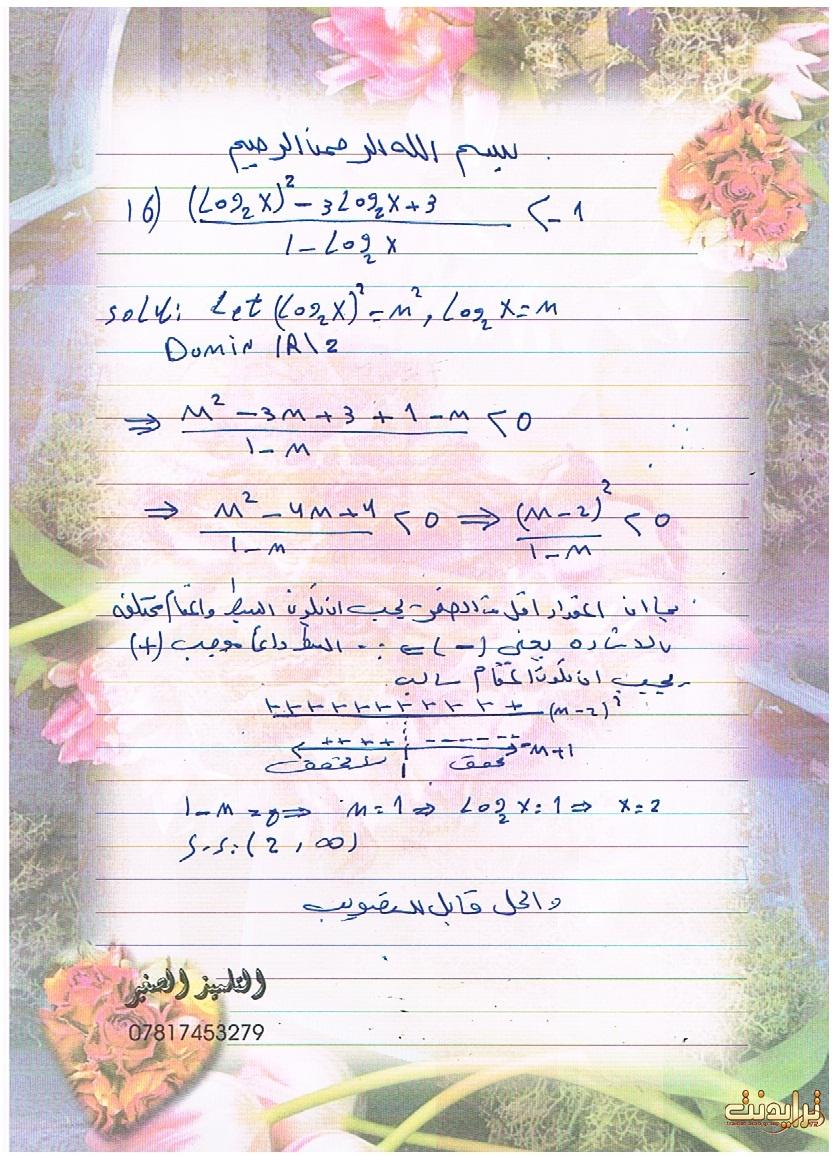 بسم الله الرحمن الرحيم
16) (Log₂x)² - 3Log₂x + 3 / 1 - Log₂x < -1
solu: Let (Log₂x)² = m², Log₂x = m
Domin IR\2
⇒ m² - 3m + 3 + 1 - m / 1 - m < 0
⇒ m² - 4m + 4 / 1 - m < 0 ⇒ (m-2)² / 1 - m < 0
بما ان المقدار اقل من الصفر يجب ان تكون البسط والمقام مختلفه
بالاشاره يعني (-) ⇐ ∵ البسط دائما موجب (+)
يجب ان تكون المقام سالب
+ + + + + + + + + + + (m-2)²
+ + + + - - - - - - -m+1
لا تحقق 1 تحقق
1-m = 0 ⇒ m = 1 ⇒ Log₂x = 1 ⇒ x = 2
s.s: (2, ∞)
والحل قابل للتصويب
التلميذ الصغير
07817453279
ترايدنت